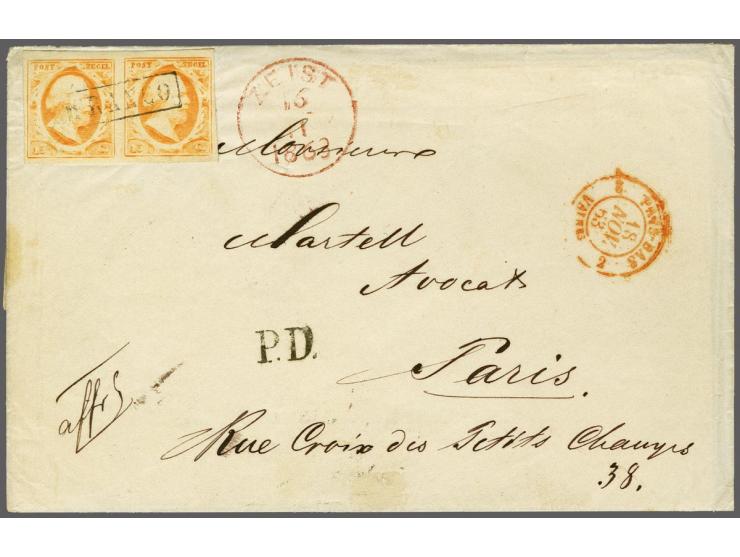 POST ZEGEL POST ZEGEL
FRANCO
ZEIST
16
11
1863
Monsieur
Martell
Avocat
Paris.
Rue Croix des Petits Champs
38.
P.D.
affr
PAYS-BAS
2 VALNES 2
18
NOV.
63